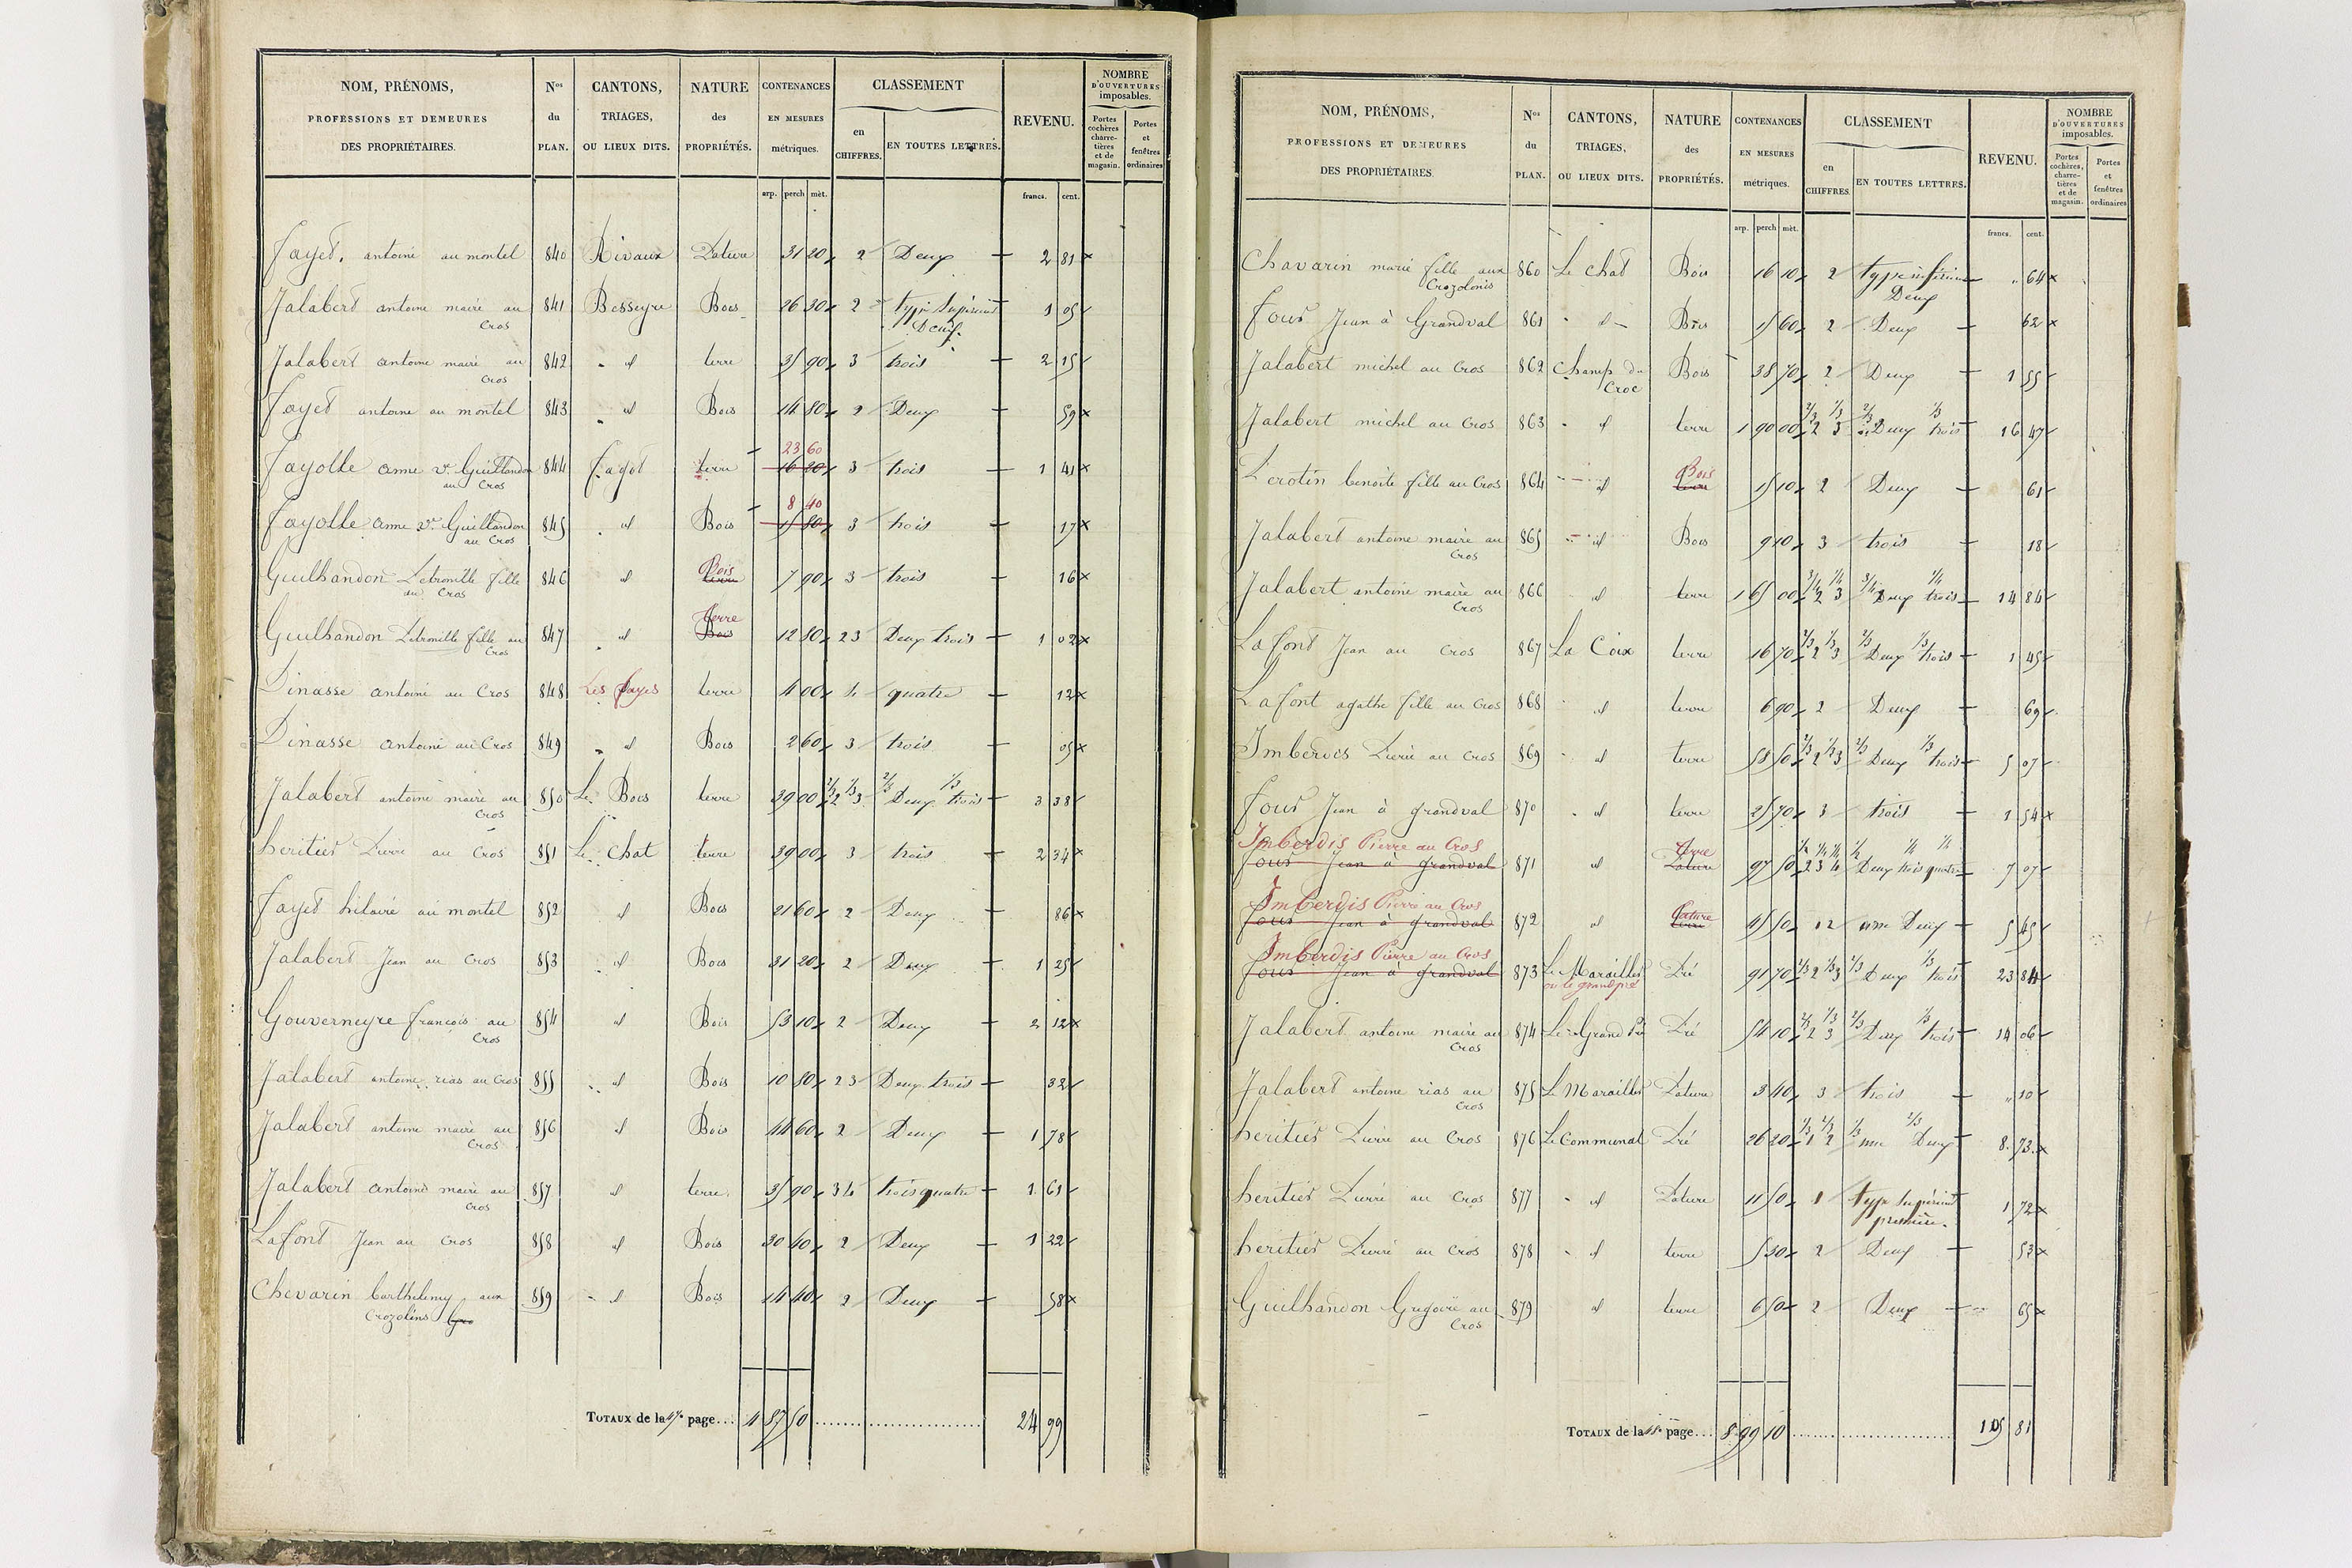 NOM, PRÉNOMS, PROFESSIONS ET DEMEURES DES PROPRIÉTAIRES. Nos du PLAN. CANTONS, TRIAGES, OU LIEUX DITS. NATURE des PROPRIÉTÉS. CONTENANCES EN MESURES métriques. CLASSEMENT en CHIFFRES. EN TOUTES LETTRES. REVENU. NOMBRE D'OUVERTURES imposables. Portes cochères charretières et de magasin. Portes et fenêtres ordinaires
arp. perch mèt. francs. cent.
Fayet, antoine au montel 840 Rivaux Pature 31 20 2 Deux 2 81
Jalabert antoine maire au Cros 841 Besseyre Bois 26 30 2 type supérieur Deux 1 05
Jalabert antoine maire au Cros 842 id terre 35 90 3 trois 2 15
Fayet antoine au montel 843 id Bois 14 80 2 Deux 59
23 60
Fayolle anne ve Guilhandon au Cros 844 Fagot terre 16 20 3 trois 1 41
8 40
Fayolle anne ve Guilhandon au Cros 845 id Bois 15 80 3 trois 17
Bois
Guilhandon Petronille fille au Cros 846 id terre 7 90 3 trois 16
terre
Guilhandon Petronille fille au Cros 847 id Bois 12 80 2 3 Deux trois 1 02
Dinasse antoine au Cros 848 Les fayes terre 4 00 4 quatre 12
Dinasse antoine au Cros 849 id Bois 2 60 3 trois 05
Jalabert antoine maire au Cros 850 Le Bois terre 39 00 2/3 2 1/3 3 2/3 Deux 1/3 trois 3 38
heritier Pierre au Cros 851 Le Chat terre 39 00 3 trois 2 34
Fayet hilaire au montel 852 id Bois 21 60 2 Deux 86
Jalabert Jean au Cros 853 id Bois 31 20 2 Deux 1 25
Gouverneyre francois au Cros 854 id Bois 53 10 2 Deux 2 12
Jalabert antoine rias au Cros 855 id Bois 10 80 2 3 Deux trois 32
Jalabert antoine maire au Cros 856 id Bois 44 60 2 Deux 1 78
Jalabert antoine maire au Cros 857 id terre 35 90 3 4 trois quatre 1 61
Lafont Jean au Cros 858 id Bois 30 40 2 Deux 1 22
Chevarin barthelemy aux Crozolins 859 id Bois 14 40 2 Deux 58
TOTAUX de la 47e page... 4 87 50 24 99
NOM, PRÉNOMS, PROFESSIONS ET DEMEURES DES PROPRIÉTAIRES. Nos du PLAN. CANTONS, TRIAGES, OU LIEUX DITS. NATURE des PROPRIÉTÉS. CONTENANCES EN MESURES métriques. CLASSEMENT en CHIFFRES. EN TOUTES LETTRES. REVENU. NOMBRE D'OUVERTURES imposables. Portes cochères, charretières et de magasin. Portes et fenêtres ordinaires
arp. perch mèt. francs. cent.
Chavarin marie fille aux Crozolonis 860 Le Chat Bois 16 10 2 type inférieur Deux 64
Four Jean à Grandval 861 id Bois 15 60 2 Deux 62
Jalabert michel au Cros 862 Champ du Croc Bois 38 70 2 Deux 1 55
Jalabert michel au Cros 863 id terre 1 90 00 2/3 2 1/3 3 2/3 Deux 1/3 trois 16 47
Bois
Perotin benoite fille au Cros 864 id terre 15 10 2 Deux 61
Jalabert antoine maire au Cros 865 id Bois 9 10 3 trois 18
Jalabert antoine maire au Cros 866 id terre 1 65 00 3/4 2 1/4 3 3/4 Deux 1/4 trois 14 84
Lafont Jean au Cros 867 La Coix terre 16 70 2/3 2 1/3 3 2/3 Deux 1/3 trois 1 45
Lafont agathe fille au Cros 868 id terre 6 90 2 Deux 69
Imberdis Pierre au Cros 869 id terre 58 50 2/3 2 1/3 3 2/3 Deux 1/3 trois 5 07
Four Jean à grandval 870 id terre 25 70 3 trois 1 54
Imberdis Pierre au Cros terre
Four Jean à grandval 871 id Pature 97 50 1/2 2 1/4 3 1/4 4 1/2 Deux 1/4 trois 1/4 quatre 7 07
Imberdis Pierre au Cros Pature
Four Jean à grandval 872 id terre 45 50 1 2 une Deux 5 45
Imberdis Pierre au Cros
Four Jean à grandval 873 Le Marailler ou le grand pré Pré 91 70 2/3 2 1/3 3 2/3 Deux 1/3 trois 23 84
Jalabert antoine maire au Cros 874 Le Grand Pré Pré 54 10 2/3 2 1/3 3 2/3 Deux 1/3 trois 14 06
Jalabert antoine rias au Cros 875 Le Marailler Pature 3 40 3 trois 10
heritier Pierre au Cros 876 Le Communal Pré 26 20 1/3 1 2/3 2 1/3 une 2/3 Deux 8 73
heritier Pierre au Cros 877 id Pature 11 50 1 type supérieur première 1 72
heritier Pierre au Cros 878 id terre 5 30 2 Deux 53
Guilhandon Gregoire au Cros 879 id terre 6 50 2 Deux 65
TOTAUX de la 48e page... 8 99 10 105 81